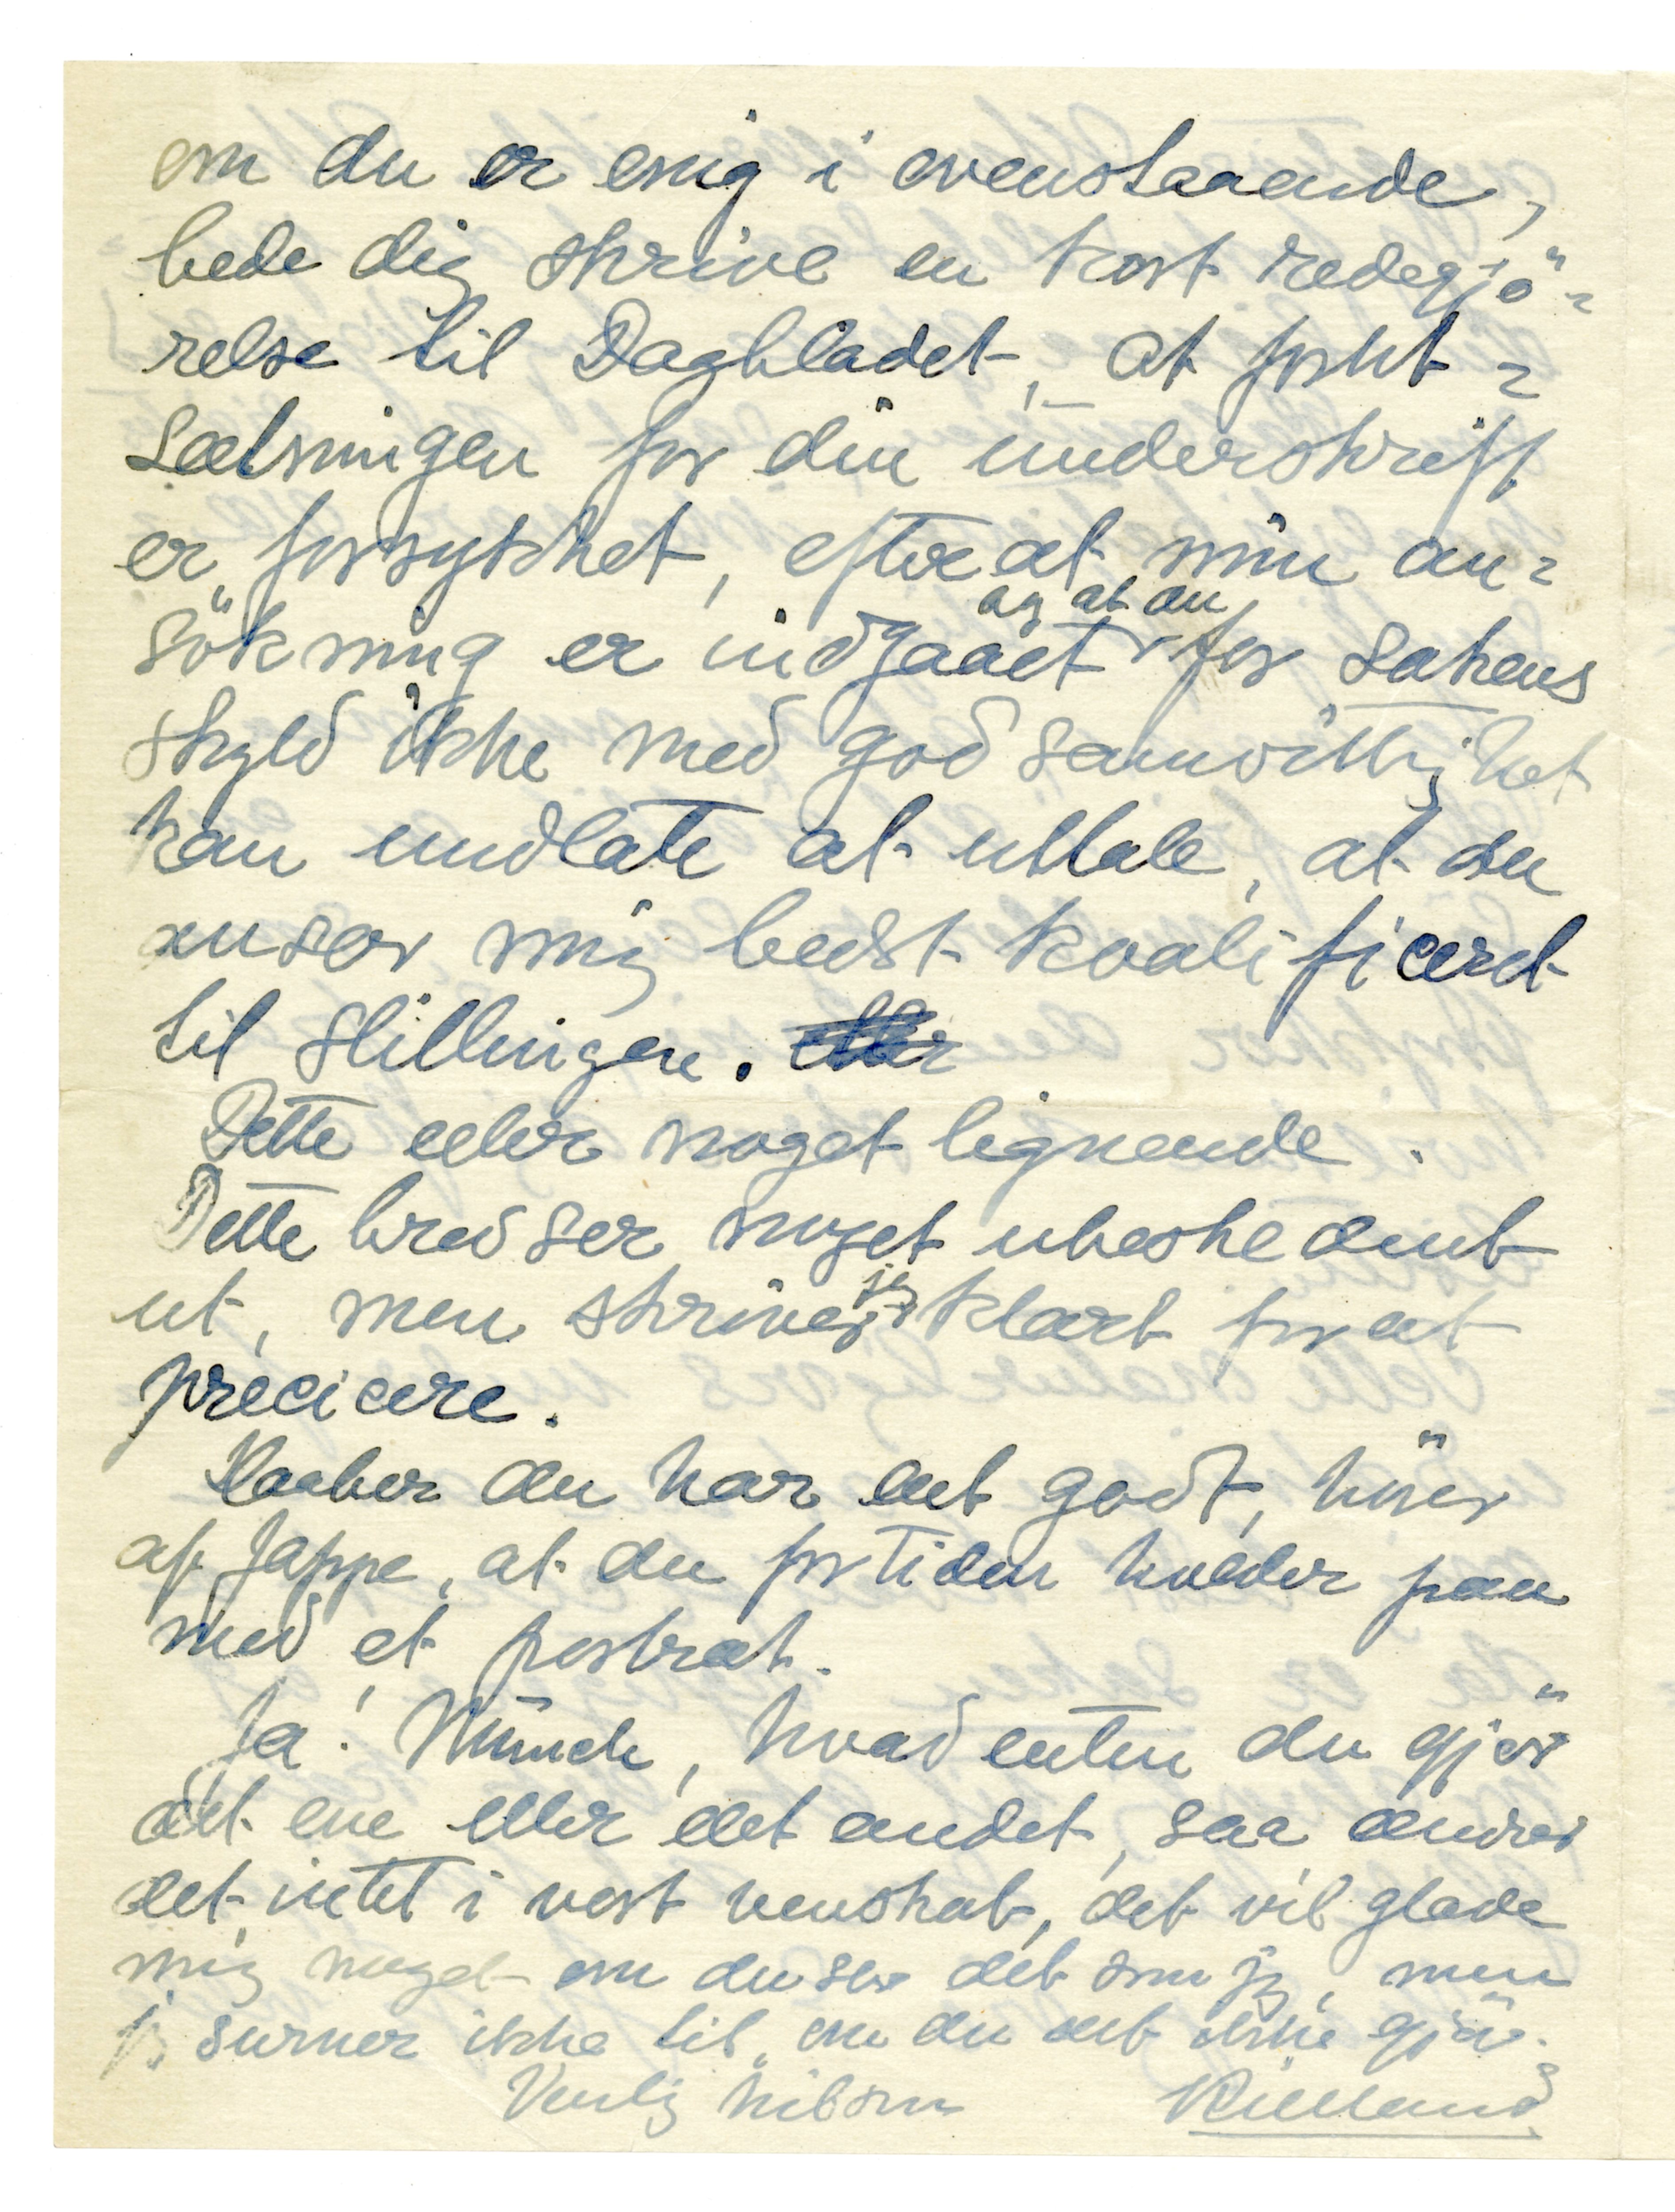 om du er enig i ovenstaaende,
bede dig skrive en kort redegjö-
relse til Dagbladet, at forut-
sætningen for din underskrift
er forrykket, efter at min an-
sökning er indgaaet og at du for sakens
skyld ikke med god samvittighet
kan undlate at uttale, at du
anser mig bedst kvalificeret
til stillingen. eller
Dette eller noget lignende.
Dette brev ser noget ubeskedent
ut, men skriver jeg klart for at
precicere.
Haaber du har det godt, hörer
af Jappe, at du for tiden holder paa
med et portræt.
Ja! Münch, hvad enten du gjör
det ene eller det andet, saa ændrer
det intet i vort venskab, det vil glæde
mig meget om du ser det som jeg, men
jeg surner ikke til, om du det ikke gjör.
Venlig hilsen Kielland